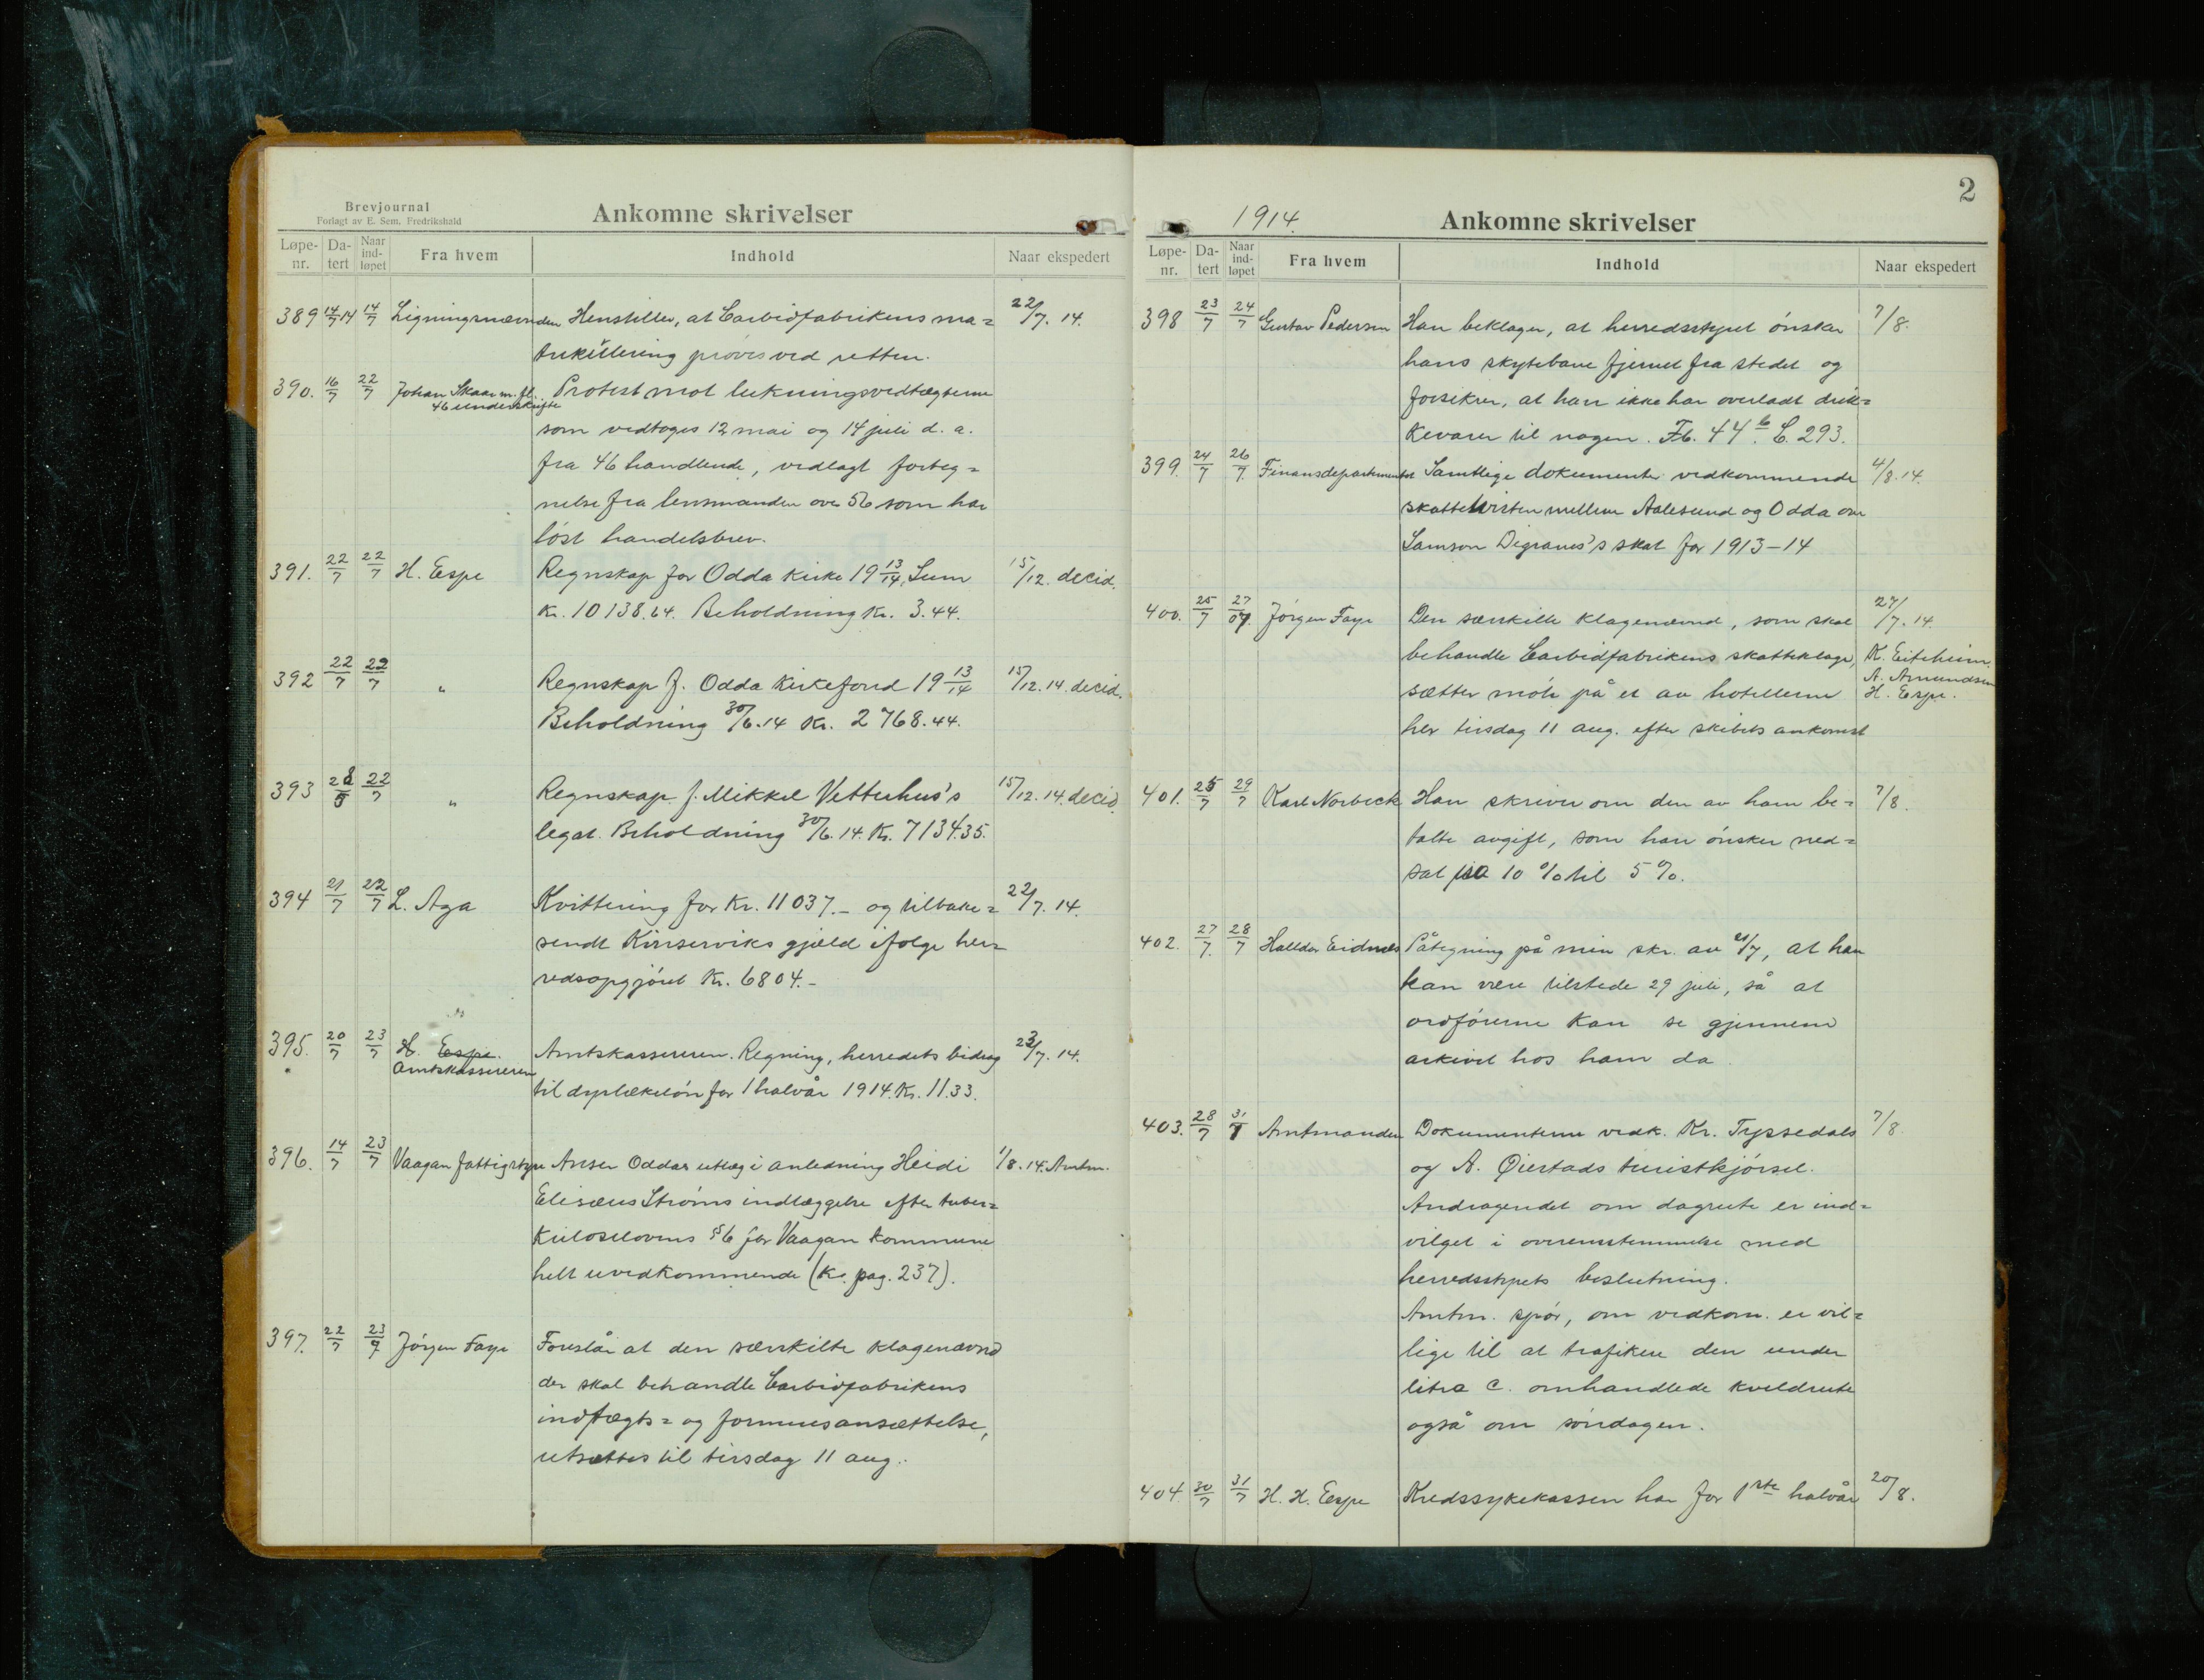 Brevjournal
Forlagt av E. Sem, Fredrikshald
Ankomne skrivelser
Løpe-nr. Da-tert Naar ind-løpet Fra hvem Indhold Naar ekspedert
389 14/7 14 14/7 Ligningsnævnden Henstiller, at Carbidfabrikens ma= 22/7. 14.
trikullering prøves ved retten.
390. 16/7 22/7 Johan Skaar m. fl. Protest mot lukningsvedtægterne
46 underskrifte
som vedtoges 12 mai og 14 juli d. a.
fra 46 handlende, vedlagt forteg=
nelse fra lensmanden over 56 som har
løst handelsbrev.
391. 22/7 22/7 H. Espe Regnskap for Odda kirke 19 13/14. Sum 15/12. decid.
Kr. 10138.64. Beholdning Kr. 3.44.
392 22/7 22/7 " Regnskap f. Odda Kirkefond 19 13/14 15/12. 14. decid.
Beholdning 30/6. 14 Kr. 2768.44.
393 22/7 " Regnskap f. Mikkel Vetterhus's 15/12. 14. decid
legat. Beholdning 30/6. 14. Kr. 7134.35.
394 21/7 22/7 L. Aga Kvittering for Kr. 11037.- og tilbake= 22/7. 14.
sendt Kinserviks gjæld ifølge her=
redsopgjøret Kr. 6804.-
395. 20/7 23/7 H. Espe. Amtskassereren. Regning, herredets bidrag 23/7. 14.
Amtskassereren
til dyrlækeløn for 1 halvår 1914. Kr. 11.33.
396. 14/7 23/7 Vaagan fattigstyre Anser Oddas utlæg i anledning Heidi 1/8. 14. Amtm.
Elisæus Strøms indlæggelse efter tuber=
kuloselovens § 6 for Vaagan kommune
helt uvedkommende (Kr. pag. 237).
397. 22/7 23/7 Jørgen Faye Foreslår at den særskilte klagenævnd
der skal behandle Carbidfabrikens
indtægts= og formuesansættelse,
utsættes til tirsdag 11 aug.
2
1914. Ankomne skrivelser
Løpe-nr. Da-tert Naar ind-løpet Fra hvem Indhold Naar ekspedert
398 23/7 24/7 Gustav Pedersen Han beklager, at herredsstyret ønsker 7/8.
hans skytebane fjernet fra stedet og
forsikrer, at han ikke har overladt drik=
kevarer til nogen. Fb. 44 b. C. 293.
399. 24/7 26/7. Finansdepartementet Samtlige dokumenter vedkommende 4/8. 14.
skattetvisten mellem Aalesund og Odda om
Samson Digranes's skat for 1913-14
400. 25/7 27/07. Jørgen Faye Den særskilte klagenævnd, som skal 27/7. 14.
behandle Carbidfabrikens skatteklage, K. Eitrheim.
A. Amundsen
sætter møte på et av hotellerne H. Espe.
her tirsdag 11 aug. efter skibets ankomst
401. 25/7 29/7 Karl Norbeck Han skriver om den av ham be= 7/8.
talte avgift, som han ønsker ned=
sat fra 10 % til 5 %.
402. 27/7. 28/7 Halldor Eidnes Påtegning på min skr. av 21/7, at han
kan være tilstede 29 juli, så at
ordførerne kan se gjennem
arkivet hos ham da.
403. 28/7 31/7 Amtmanden Dokumenterne vedk. Kr. Tyssedals 7/8.
og A. Øiestads turistkjørsel.
Andragendet om dagrute er ind=
vilget i overensstemmelse med
herredsstyrets beslutning.
Amtm. spør, om vedkom. er vil=
lige til at trafikere den under
litra C. omhandlede kveldrute
også om søndagen.
404 30/7 31/7 H. H. Espe Kredssykekassen har for 1ste halvår 20/8.